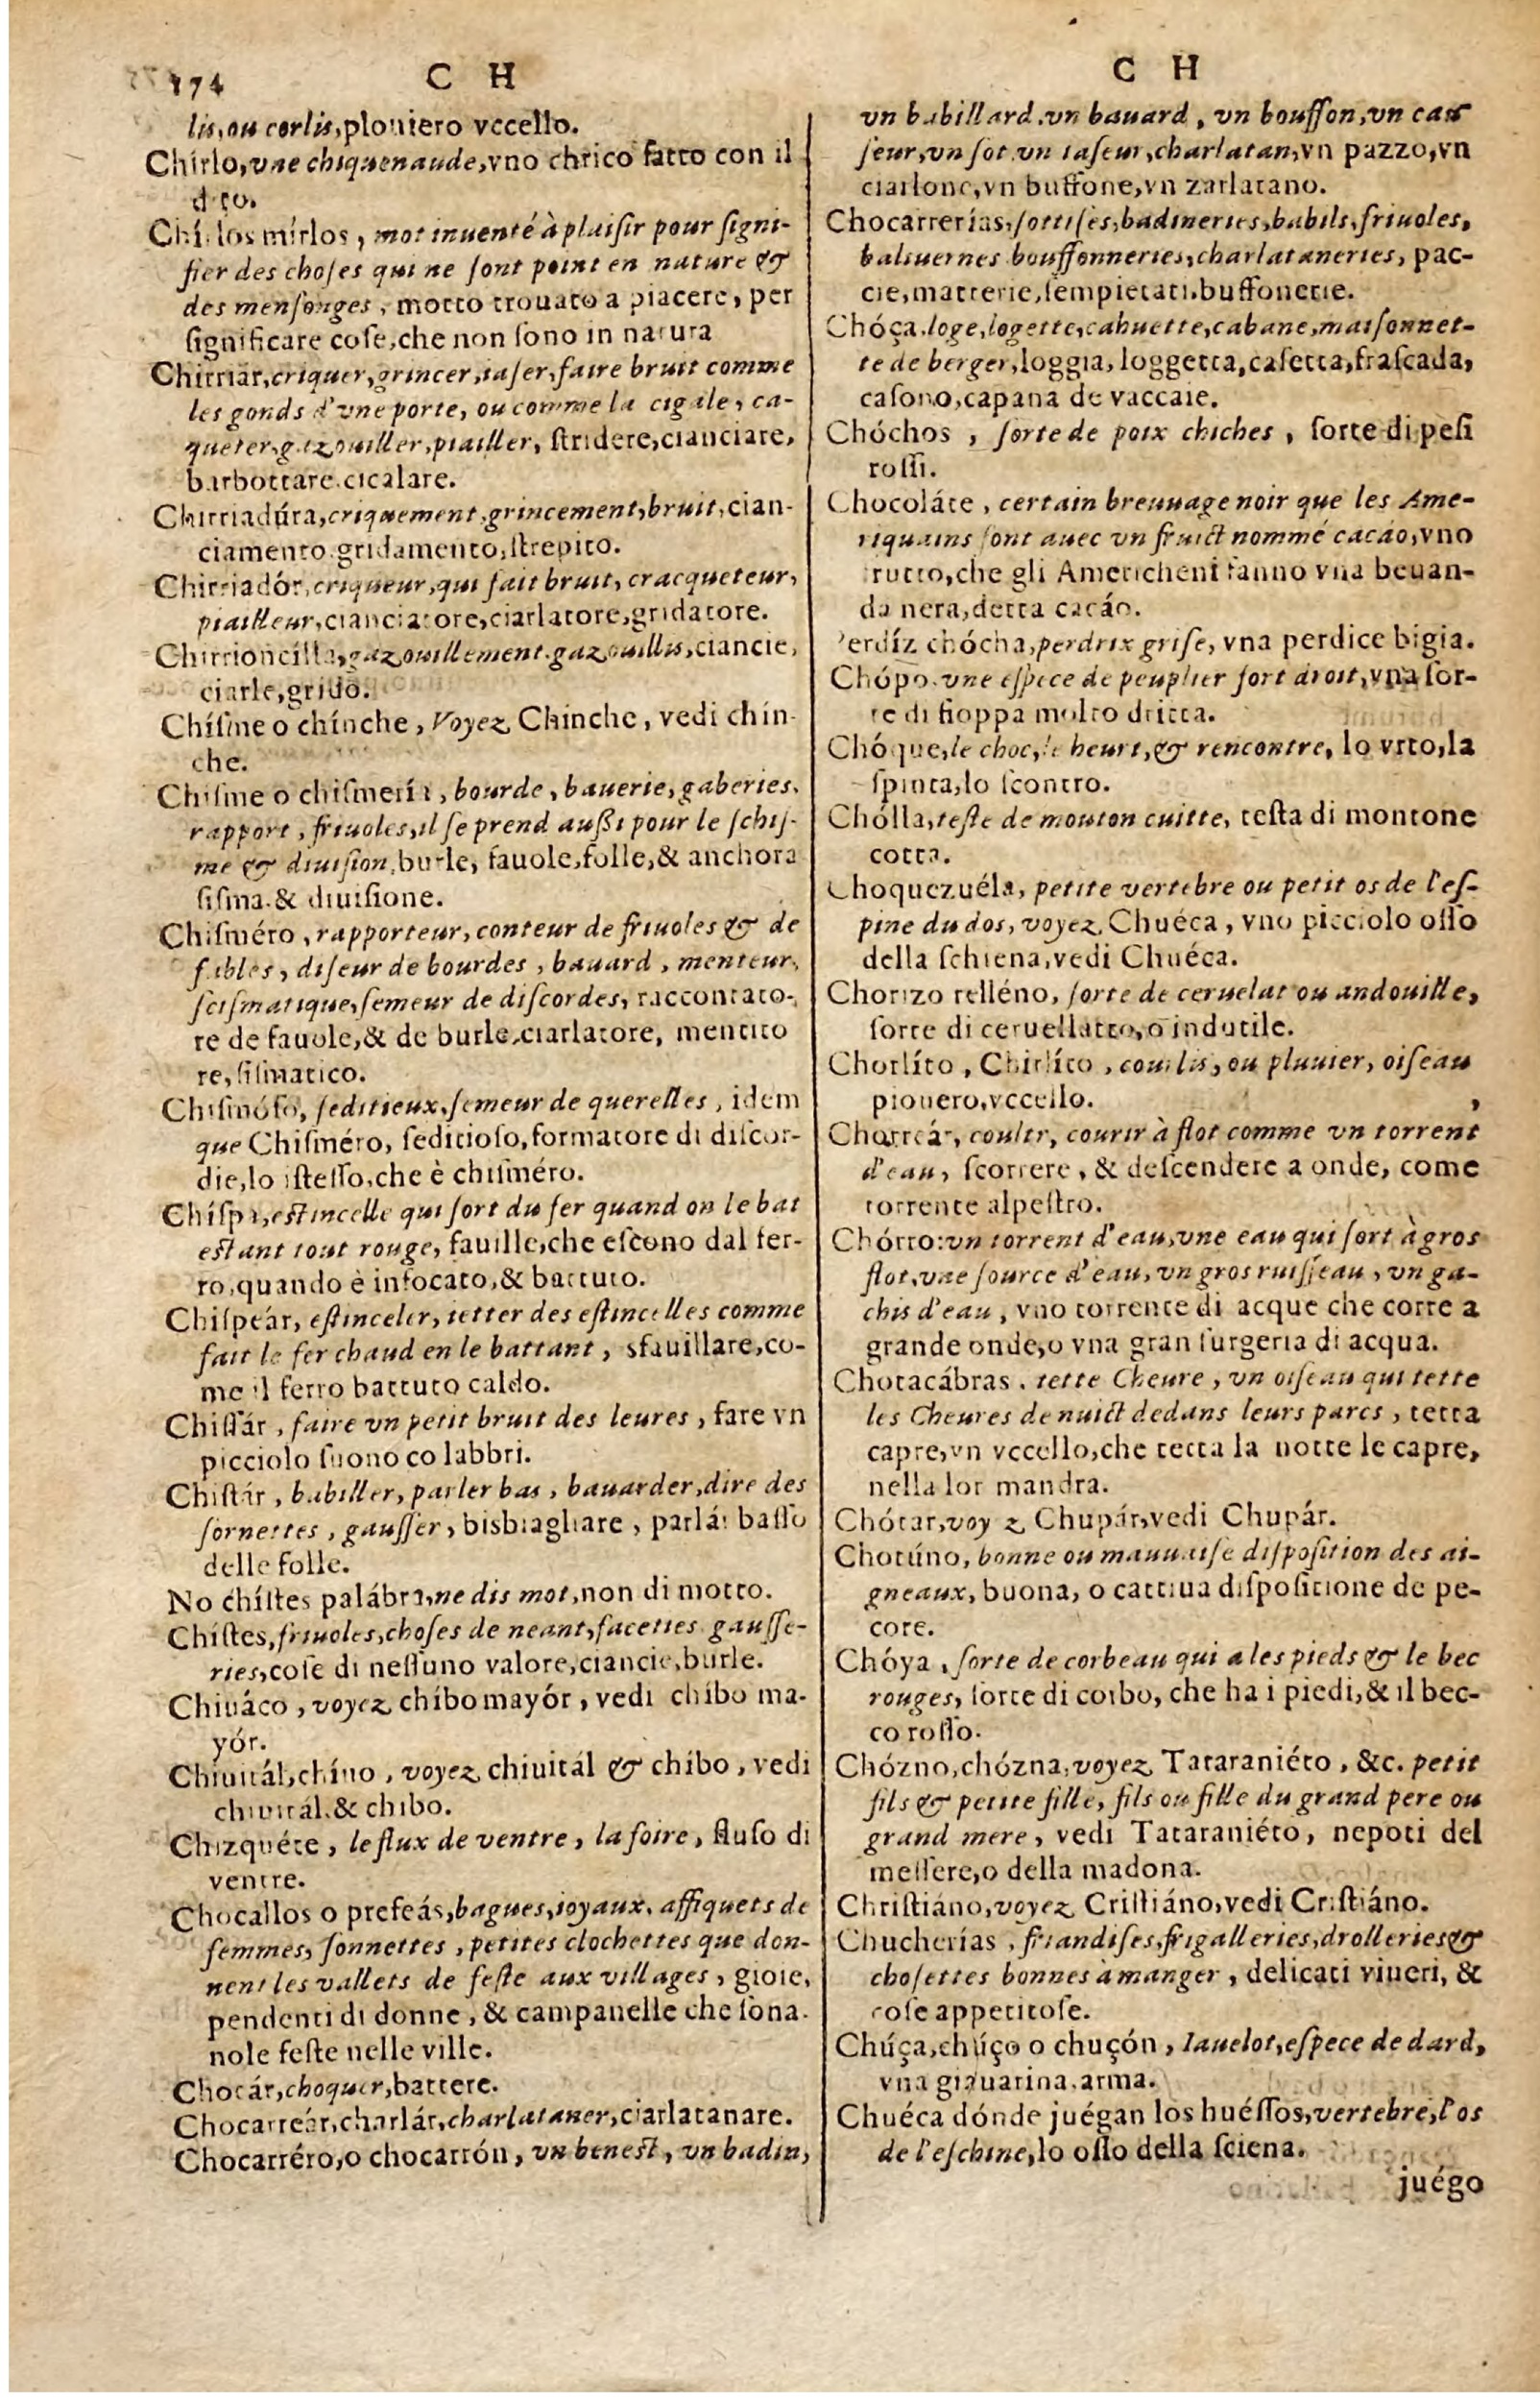 174
C H
lis, ou corlis, plouiero vccello.
Chírlo, vne chiquenaude, vno chrico fatto con il
Chírlos mírlos, mot inuenté à plaisir pour signi-
fier des choses qui ne sont point en nature &
des mensonges, motto trouato a piacere, per
significare cose, che non sono in natura
Chirriár, criquer, grincer, iaser, faire bruit comme
les gonds d'vne porte, ou comme la cigale, ca-
queter, gazouiller, piailler, stridere, cianciare,
barbottare. cicalare.
Chirriadúra, criquement, grincement, bruit, cian-
ciamento. gridamento, strepito.
Chirriadór, criqueur, qui fait bruit, cracqueteur,
piailleur, cianciatore, ciarlatore, gridatore.
Chirrioncílla, gazouillement. gazouillis, ciancie,
ciarle, grido.
Chísme o chínche, Voyez Chinche, vedi chín-
che.
Chisme o chismería, bourde, bauerie, gaberies.
rapport, friuoles, il se prend aussi pour le schis-
me & diuision, burle, fauole, folle, & anchora
sisma. & diuisione.
Chisméro, rapporteur, conteur de friuoles & de
fables, diseur de bourdes, bauard, menteur,
scismatique, semeur de discordes, raccontato-
re de fauole, & de burle, ciarlatore, mentito
re, sismatico.
Chismóso, seditieux, semeur de querelles, idem
que Chisméro, seditioso, formatore di discor-
die, lo istesso, che è chisméro.
Chíspa, estincelle qui sort du fer quand on le bat
estant tout rouge, fauille, che escono dal fer-
ro, quando è infocato, & battuto.
Chispeár, estinceler, ietter des estincelles comme
fait le fer chaud en le battant, sfauillare, co-
me il ferro battuto caldo.
Chissár, faire vn petit bruit des leures, fare vn
picciolo suono co labbri.
Chistár, babiller, parler bas, bauarder, dire des
sornettes, gausser, bisbiagliare, parlár basso
delle folle.
No chístes palábra, ne dis mot, non di motto.
Chístes, friuoles, choses de neant, faceties gausse-
ries, cose di nessuno valore, ciancie, burle.
Chiuáco, voyez chíbo mayór, vedi chíbo ma-
yór.
Chiuitál, chíuo, voyez chiuitál & chíbo, vedi
chiuitál. & chibo.
Chizquéte, le flux de ventre, la foire, fluso di
ventre.
Chocallos o prefeás, bagues, ioyaux. affiquets de
femmes, sonnettes, petites clochettes que don-
nent les vallets de feste aux villages, gioie,
pendenti di donne, & campanelle che sona.
nole feste nelle ville.
Chocár, choquer, battere.
Chocarreár, charlár, charlataner, ciarlatanare.
Chocarréro, o chocarrón, vn benest, vn badin,
C H
vn babillard. vn bauard, vn bouffon, vn cau
seur, vn sot. vn iaseur, charlatan, vn pazzo, vn
ciarlone, vn buffone, vn zarlatano.
Chocarrerías, sottises, badineries, babils, friuoles,
baliuernes bouffonneries, charlataneries, pac-
cie, matterie, sempietati. buffonerie.
Chóça. loge, logette, cahuette, cabane, maisonnet-
te de berger, loggia, loggetta, casetta, frascada,
casono, capana de vaccaie.
Chóchos, sorte de poix chiches, sorte di pesi
rossi.
Chocoláte, certain breuuage noir que les Ame-
riquains font auec vn fruict nommé cacáo, vno
rutto, che gli Americheni fanno vna beuan-
da nera, detta cacáo.
Perdíz chócha, perdrix grise, vna perdice bigia.
Chópo. vne espece de peuplier fort droit, vna sor-
te di fioppa molto dritta.
Chóque, le choc, le heurt, & rencontre, lo vrto, la
spinta, lo scontro.
Chólla, teste de mouton cuitte, testa di montone
cotta.
Choquezuéla, petite vertebre ou petit os de l'es-
pine du dos, voyez Chuéca, vno picciolo osso
della schiena, vedi Chuéca.
Chorizo relléno, sorte de ceruelat ou andouille,
sorte di ceruellatto, o indutile.
Chorlíto, Chirlíto, courlis, ou pluuier, oiseau
piouero, vccello.
Chorreár, couler, courir à flot comme vn torrent
d'eau, scorrere, & descendere a onde, come
torrente alpestro.
Chórro: vn torrent d'eau, vne eau qui sort à gros
flot, vne source d'eau, vn gros ruisseau, vn ga-
chis d'eau, vno torrente di acque che corre a
grande onde, o vna gran surgeria di acqua.
Chotacábras. tette Cheure, vn oiseau qui tette
les Cheures de nuict dedans leurs parcs, tetta
capre, vn vccello, che tetta la notte le capre,
nella lor mandra.
Chótar, voyez Chupár, vedi Chupár.
Chotúno, bonne ou mauuaise disposition des ai-
gneaux, buona, o cattiua dispositione de pe-
core.
Chóya, sorte de corbeau qui a les pieds & le bec
rouges, sorte di corbo, che ha i piedi, & il bec-
co rosso.
Chózno, chózna, voyez Tataraniéto, &c. petit
fils & petite fille, fils ou fille du grand pere ou
grand mere, vedi Tataraniéto, nepoti del
messere, o della madona.
Christiáno, voyez Cristiáno, vedi Cristiáno.
Chucherías, friandises, frigalleries, drolleries &
chosettes bonnes à manger, delicati viueri, &
cose appetitose.
Chúça, chúço o chuçón, Iauelot, espece de dard,
vna giauarina. arma.
Chuéca dónde juégan los huéssos, vertebre, l'os
de l'eschine, lo osso della sciena.
juégo